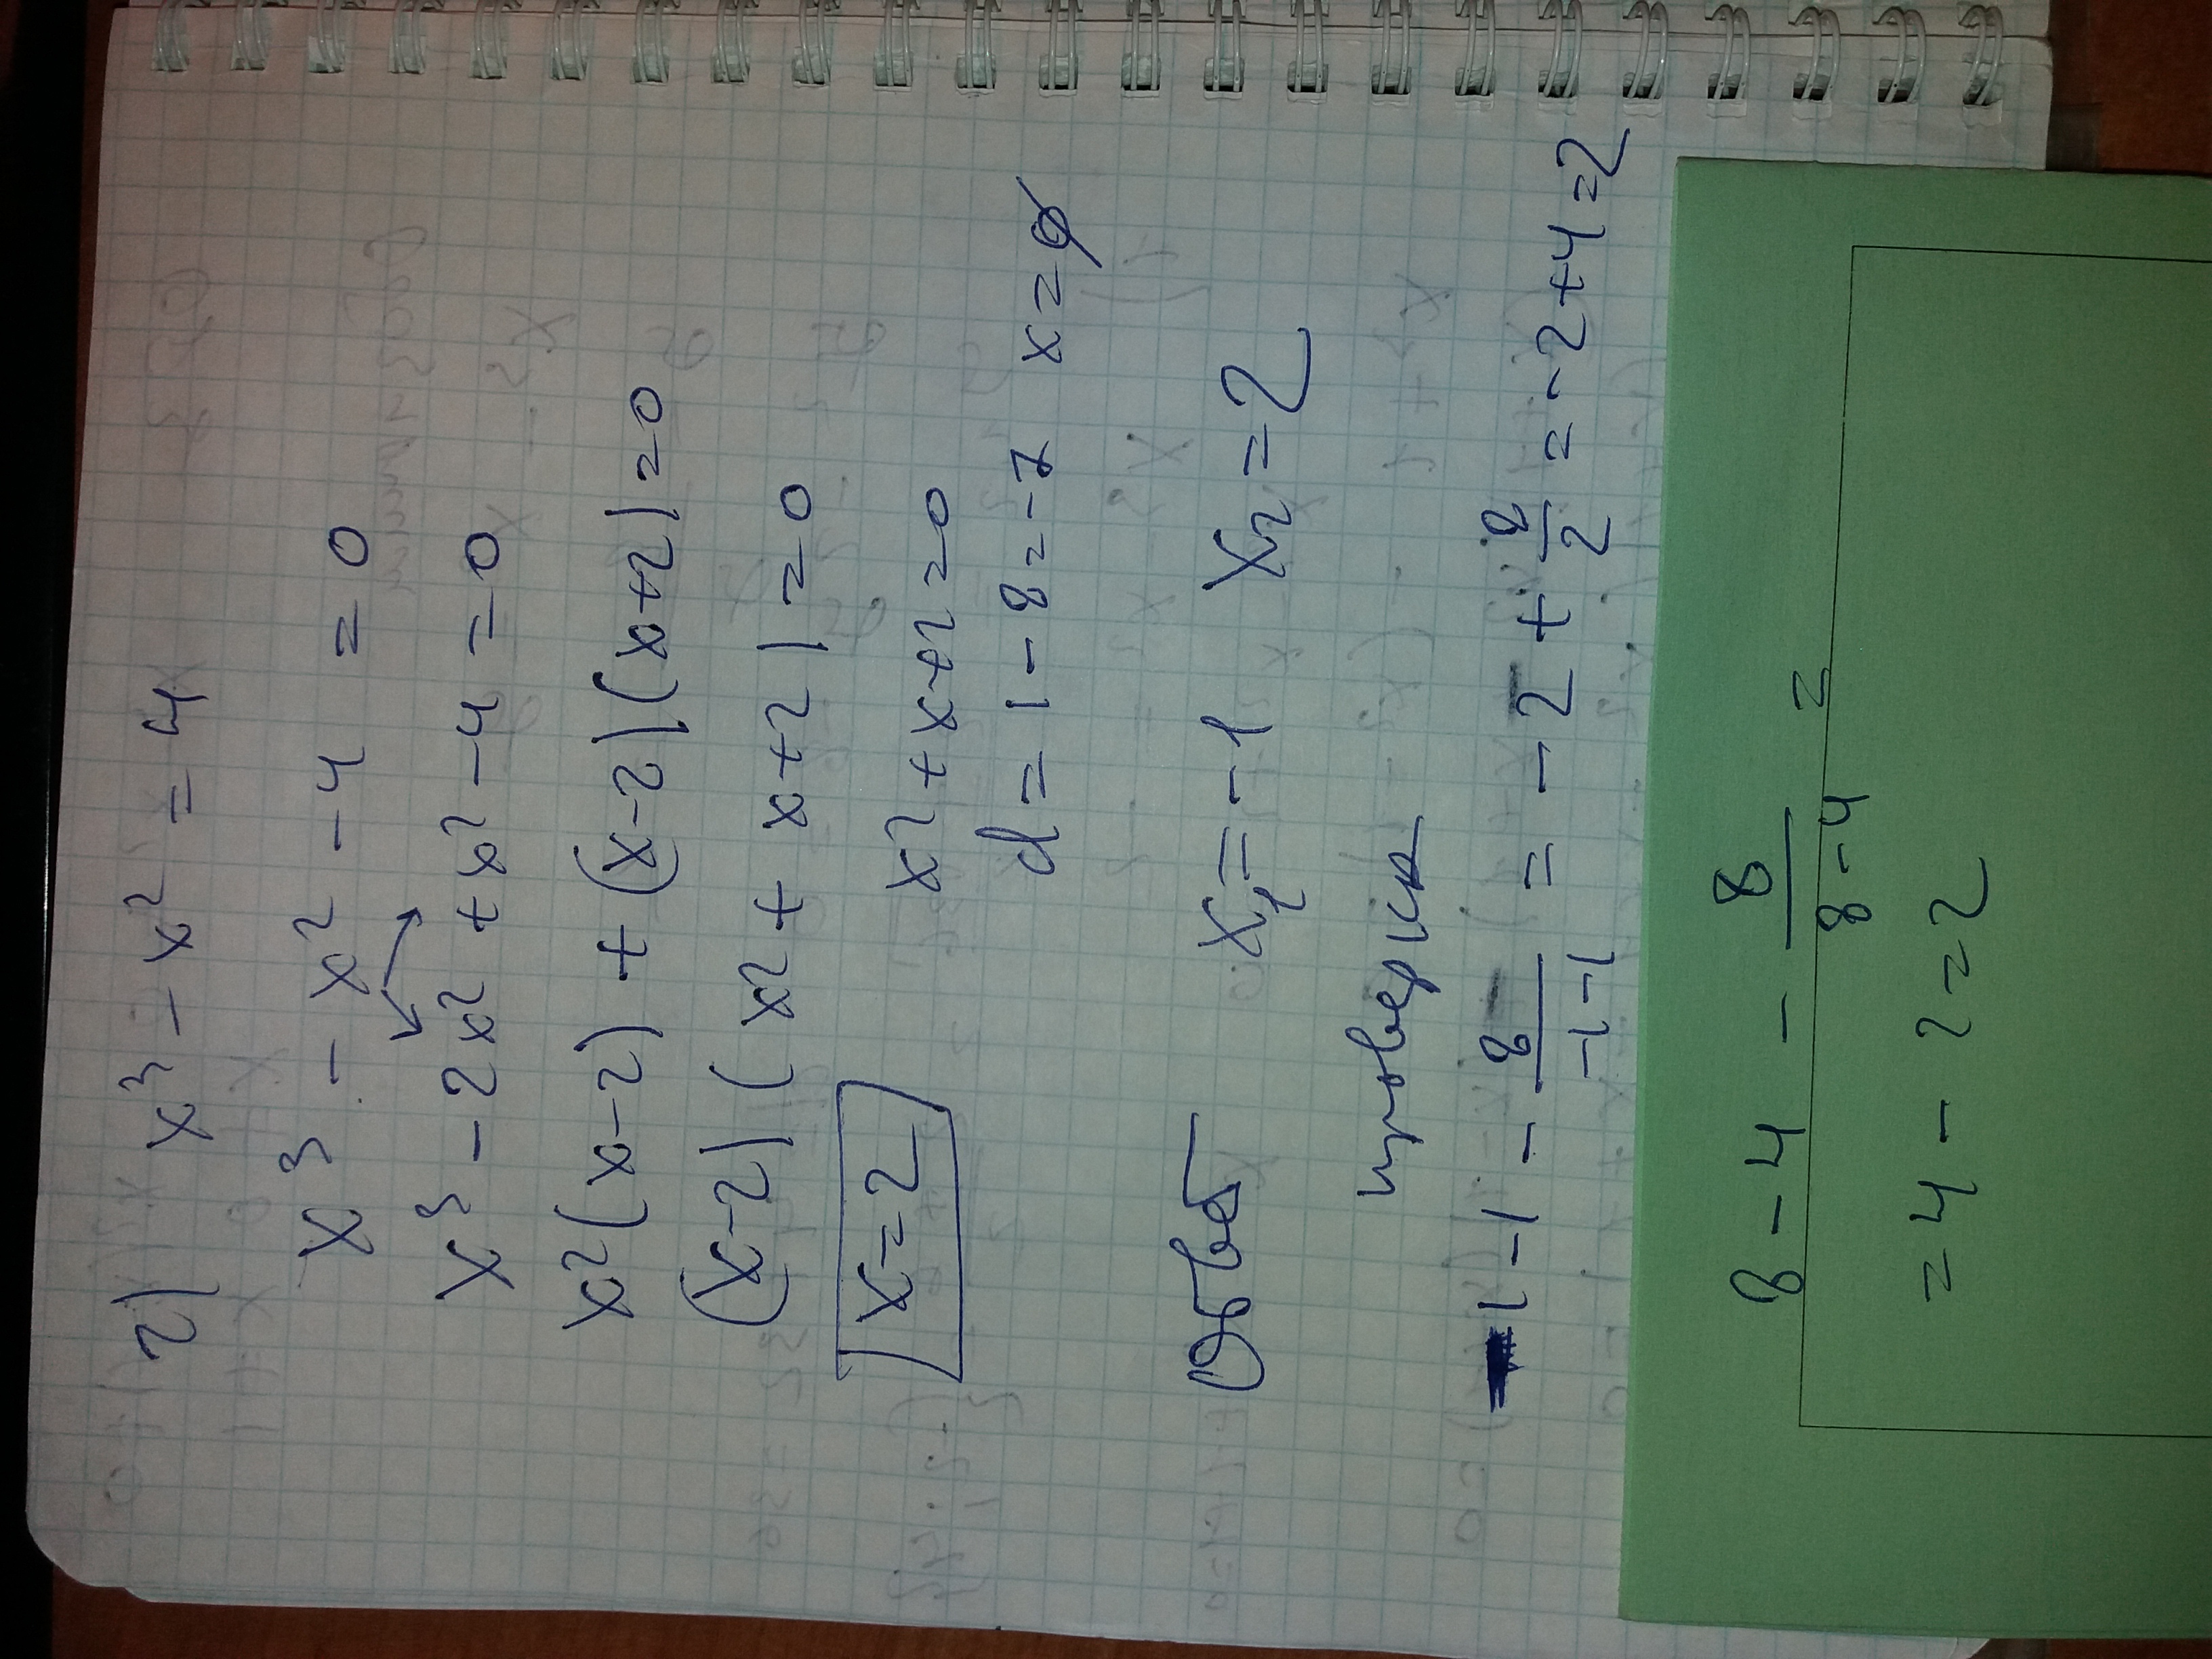 2) x³ - x² = 4
x³ - x² - 4 = 0
x³ - 2x² + x² - 4 = 0
x²(x-2) + (x-2)(x+2) = 0
(x-2)(x² + x+2) = 0
x=2 x² + x+2=0
d = 1 - 8 = -7 x = ∅
Ответ x₁ = -1 x₂ = 2
проверка
-1 - 1 - 8/(-1-1) = -2 + 8/2 = -2+4=2
8 - 4 - 8/(8-4) =
= 4 - 2 = 2